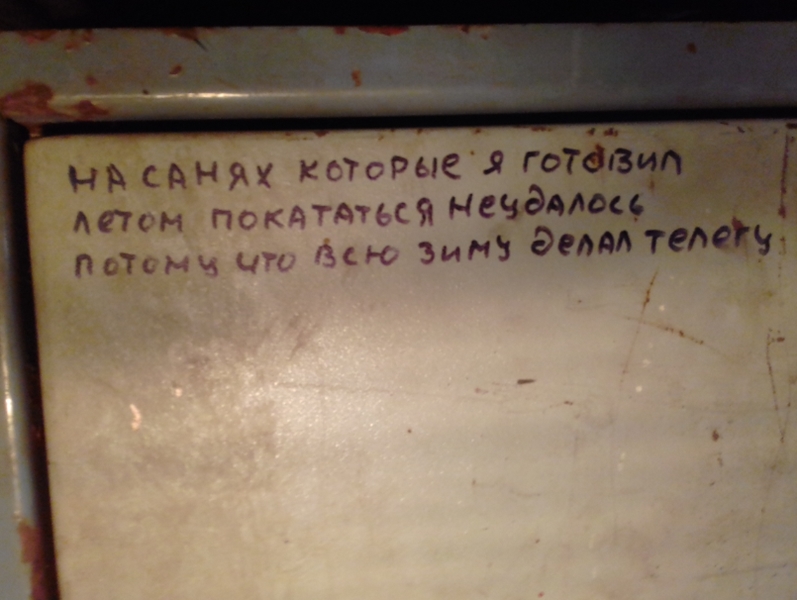 НА САНЯХ КОТОРЫЕ Я ГОТОВИЛ
ЛЕТОМ ПОКАТАТЬСЯ НЕУДАЛОСЬ
ПОТОМУ ЧТО ВСЮ ЗИМУ ДЕЛАЛ ТЕЛЕГУ